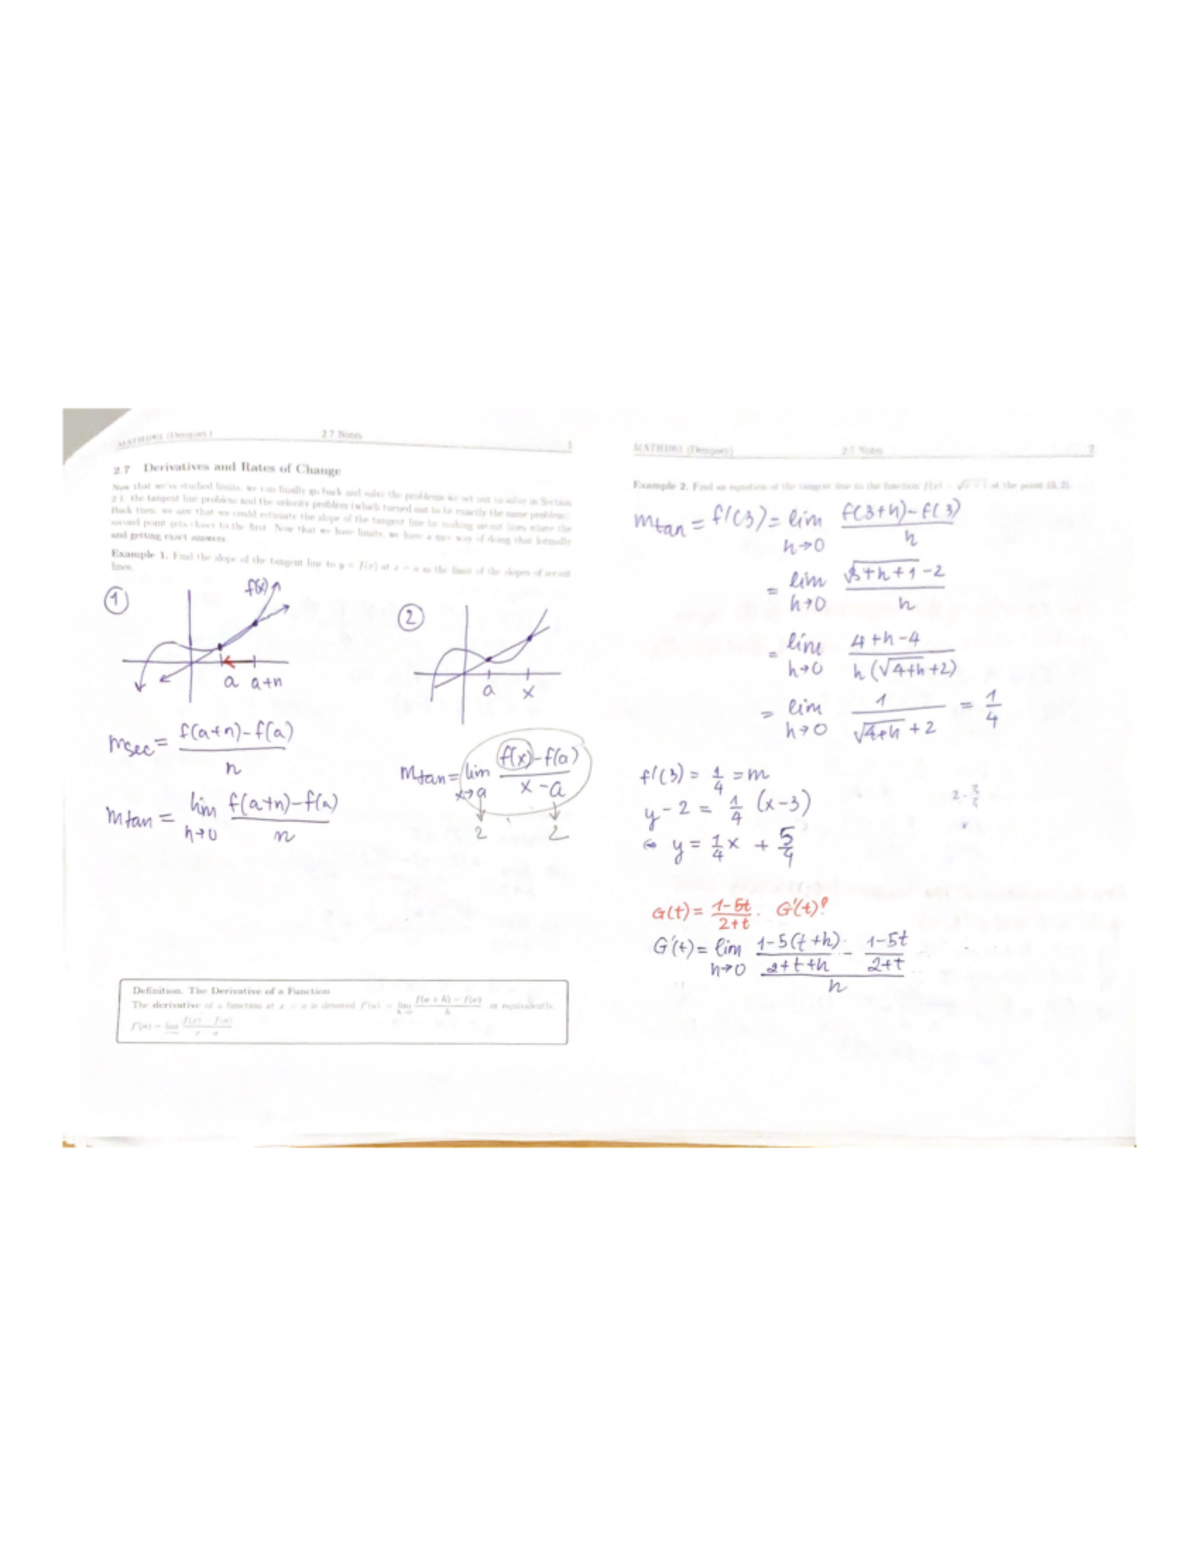 MATH1061 (Dempsey) 2.7 Notes 1
2.7 Derivatives and Rates of Change
Now that we've studied limits, we can finally go back and solve the problems we set out to solve in Section
2.1: the tangent line problem and the velocity problem (which turned out to be exactly the same problem).
Back then, we saw that we could estimate the slope of the tangent line by making secant lines where the
second point gets closer to the first. Now that we have limits, we have a nice way of doing that formally
and getting exact answers.
Example 1. Find the slope of the tangent line to y = f(x) at x = a as the limit of the slopes of secant
lines.
① ②
f(x)
a a+h
a x
msec = f(a+h)-f(a) / h
mtan = lim h→0 f(a+h)-f(a) / h
mtan = lim x→a f(x)-f(a) / x-a
2 2
Definition. The Derivative of a Function
The derivative of a function at x = a is denoted f'(a) = lim h→0 f(a + h) − f(a) / h or equivalently,
f'(a) = lim x→a f(x) − f(a) / x − a
MATH1061 (Dempsey) 2.7 Notes 2
Example 2. Find an equation of the tangent line to the function f(x) = √x + 1 at the point (3, 2).
mtan = f'(3) = lim h→0 f(3+h)-f(3) / h
= lim h→0 √3+h+1 -2 / h
= lim h→0 4+h-4 / h(√4+h +2)
= lim h→0 1 / √4+h +2 = 1/4
f'(3) = 1/4 = m
y-2 = 1/4 (x-3)
⇔ y = 1/4 x + 5/4
G(t) = 1-5t / 2+t . G'(t)?
G'(t) = lim h→0 1-5(t+h) / 2+t+h - 1-5t / 2+t / h